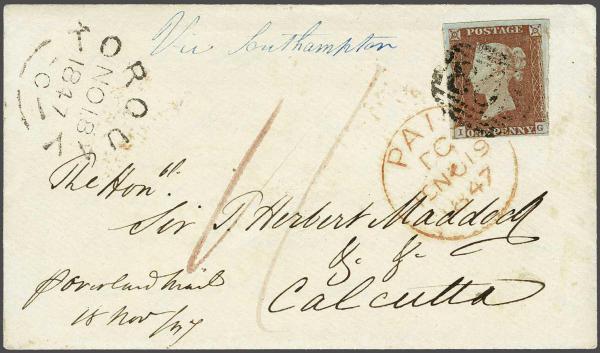 Via Southampton
TORQUAY
NO 18
1847
C
POSTAGE
I ONE PENNY G
PAID
NO 19
1847
The Honbl.
Sir T. Herbert Maddock
&. &.
Calcutta
p overland mail
18 Nov/47